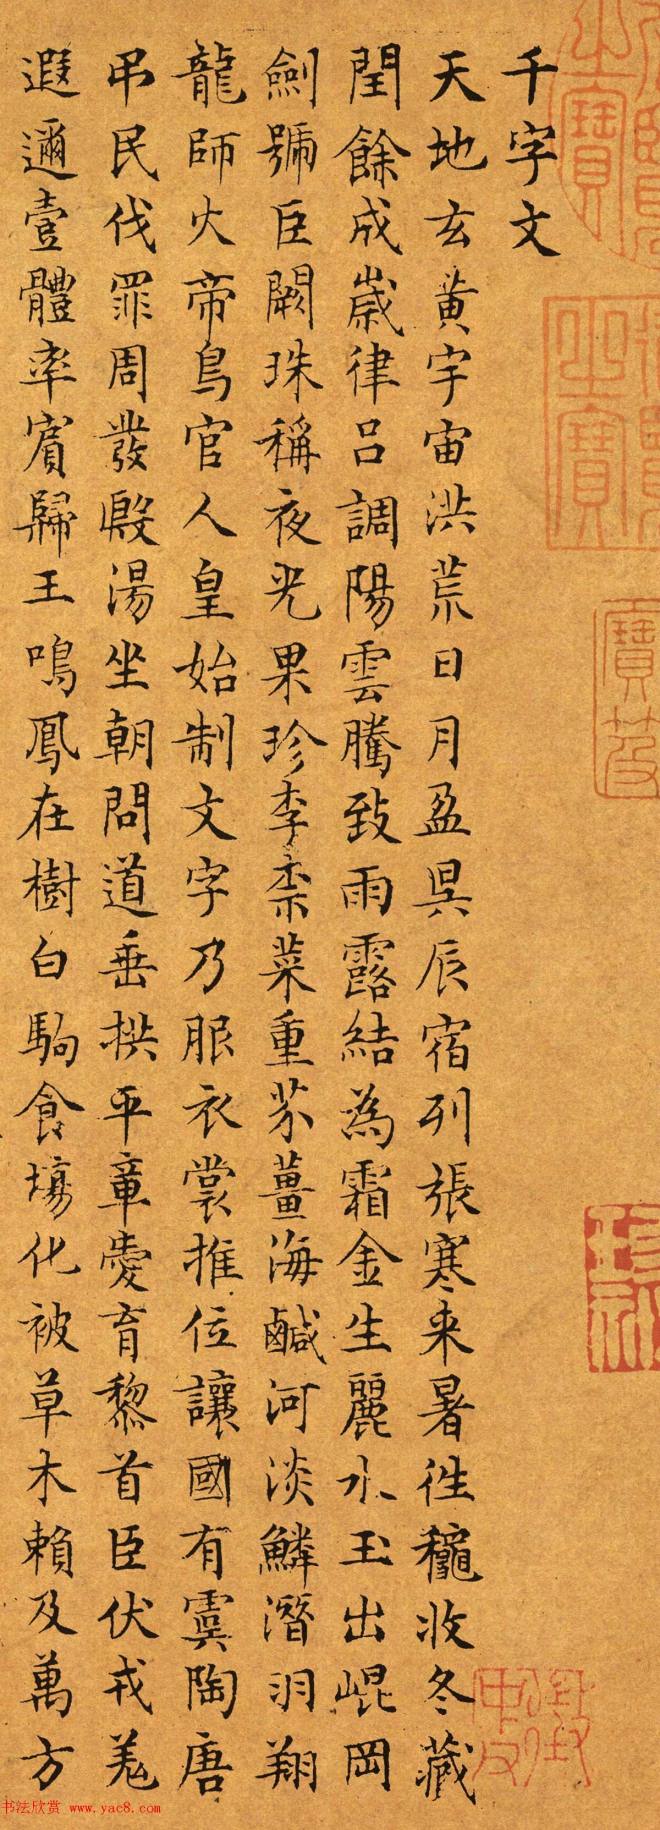 千字文
天地玄黃宇宙洪荒日月盈昃辰宿列張寒来暑往穐收冬藏
閏餘成歲律吕調陽雲騰致雨露結為霜金生麗水玉出崐岡
劍號臣闕珠稱夜光果珍李柰菜重芥薑海鹹河淡鱗潛羽翔
龍師火帝鳥官人皇始制文字乃服衣裳推位讓國有虞陶唐
弔民伐罪周發殷湯坐朝問道垂拱平章愛育黎首臣伏戎羌
遐邇壹體率賓歸王鳴鳳在樹白駒食場化被草木賴及萬方
书法欣赏 www.yac8.com